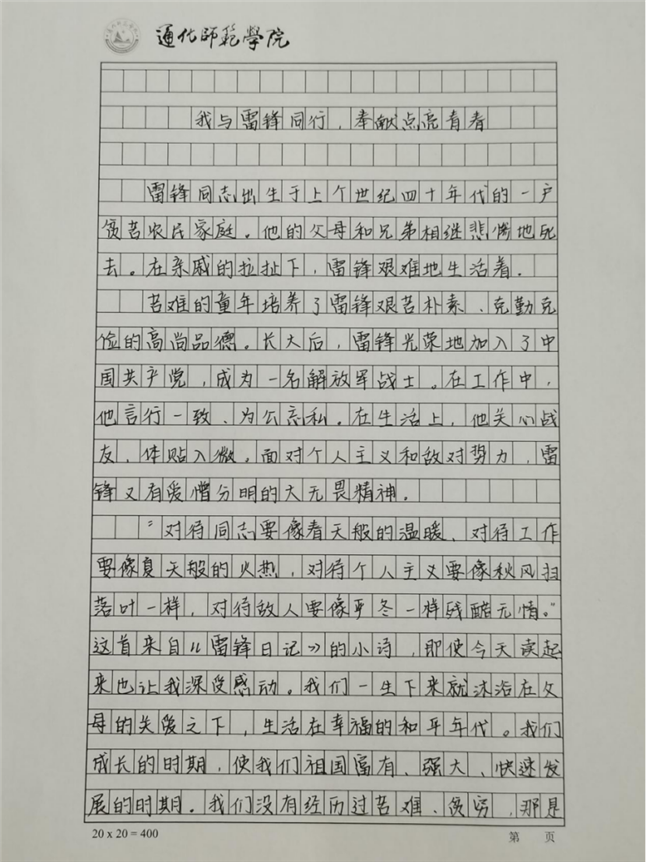 通化師範學院
我与雷锋同行，奉献点亮青春
雷锋同志出生于上个世纪四十年代的一户
贫苦农民家庭。他的父母和兄弟相继悲惨地死
去。在亲戚的拉扯下，雷锋艰难地生活着。
苦难的童年培养了雷锋艰苦朴素、克勤克
俭的高尚品德。长大后，雷锋光荣地加入了中
国共产党，成为一名解放军战士。在工作中，
他言行一致、为公忘私。在生活上，他关心战
友，体贴入微。面对个人主义和敌对势力，雷
锋又有爱憎分明的大无畏精神。
“对待同志要像春天般的温暖、对待工作
要像夏天般的火热，对待个人主义要像秋风扫
落叶一样，对待敌人要像严冬一样残酷无情。”
这首来自《雷锋日记》的小诗，即使今天读起
来也让我深受感动。我们一生下来就沐浴在父
母的关爱之下，生活在幸福的和平年代。我们
成长的时期，使我们祖国富有、强大、快速发
展的时期。我们没有经历过苦难、贫穷，那是
20 x 20 = 400
第 页